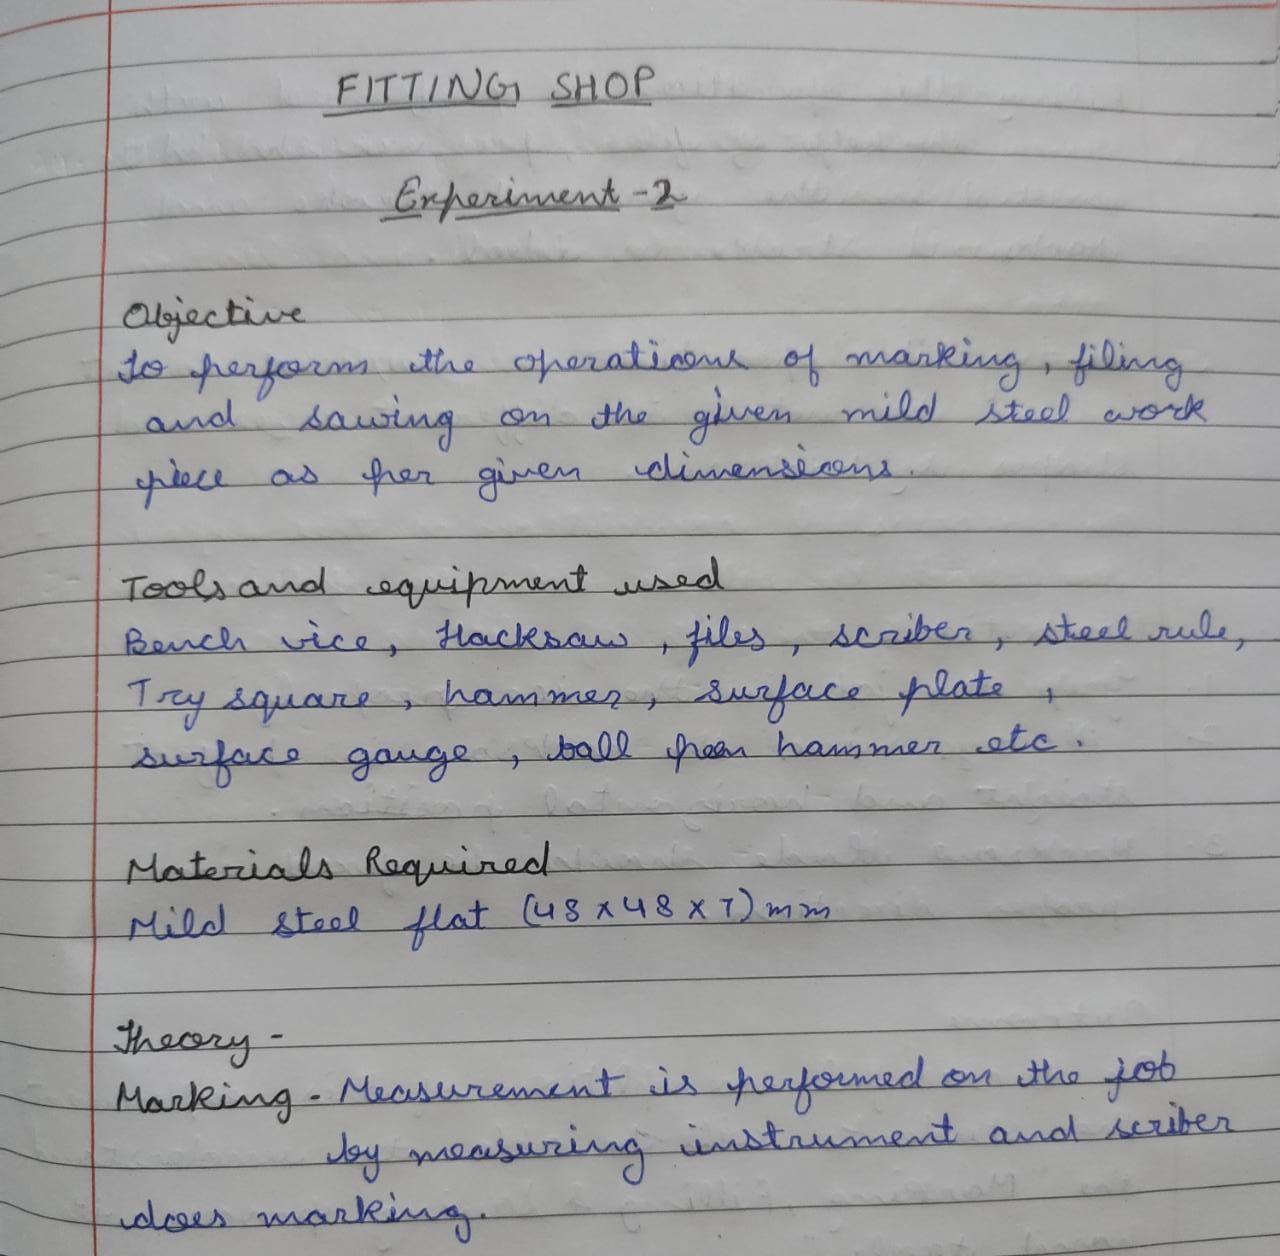 FITTING SHOP
Experiment - 2
Objective
To perform the operations of marking, filing
and sawing on the given mild steel work
piece as per given dimensions.
Tools and equipment used
Bench vice, Hacksaw, files, scriber, steel rule,
Try square, hammer, surface plate,
surface gauge, ball peen hammer etc.
Materials Required
Mild steel flat (48 x 48 x 7) mm
Theory -
Marking - Measurement is performed on the job
by measuring instrument and scriber
does marking.